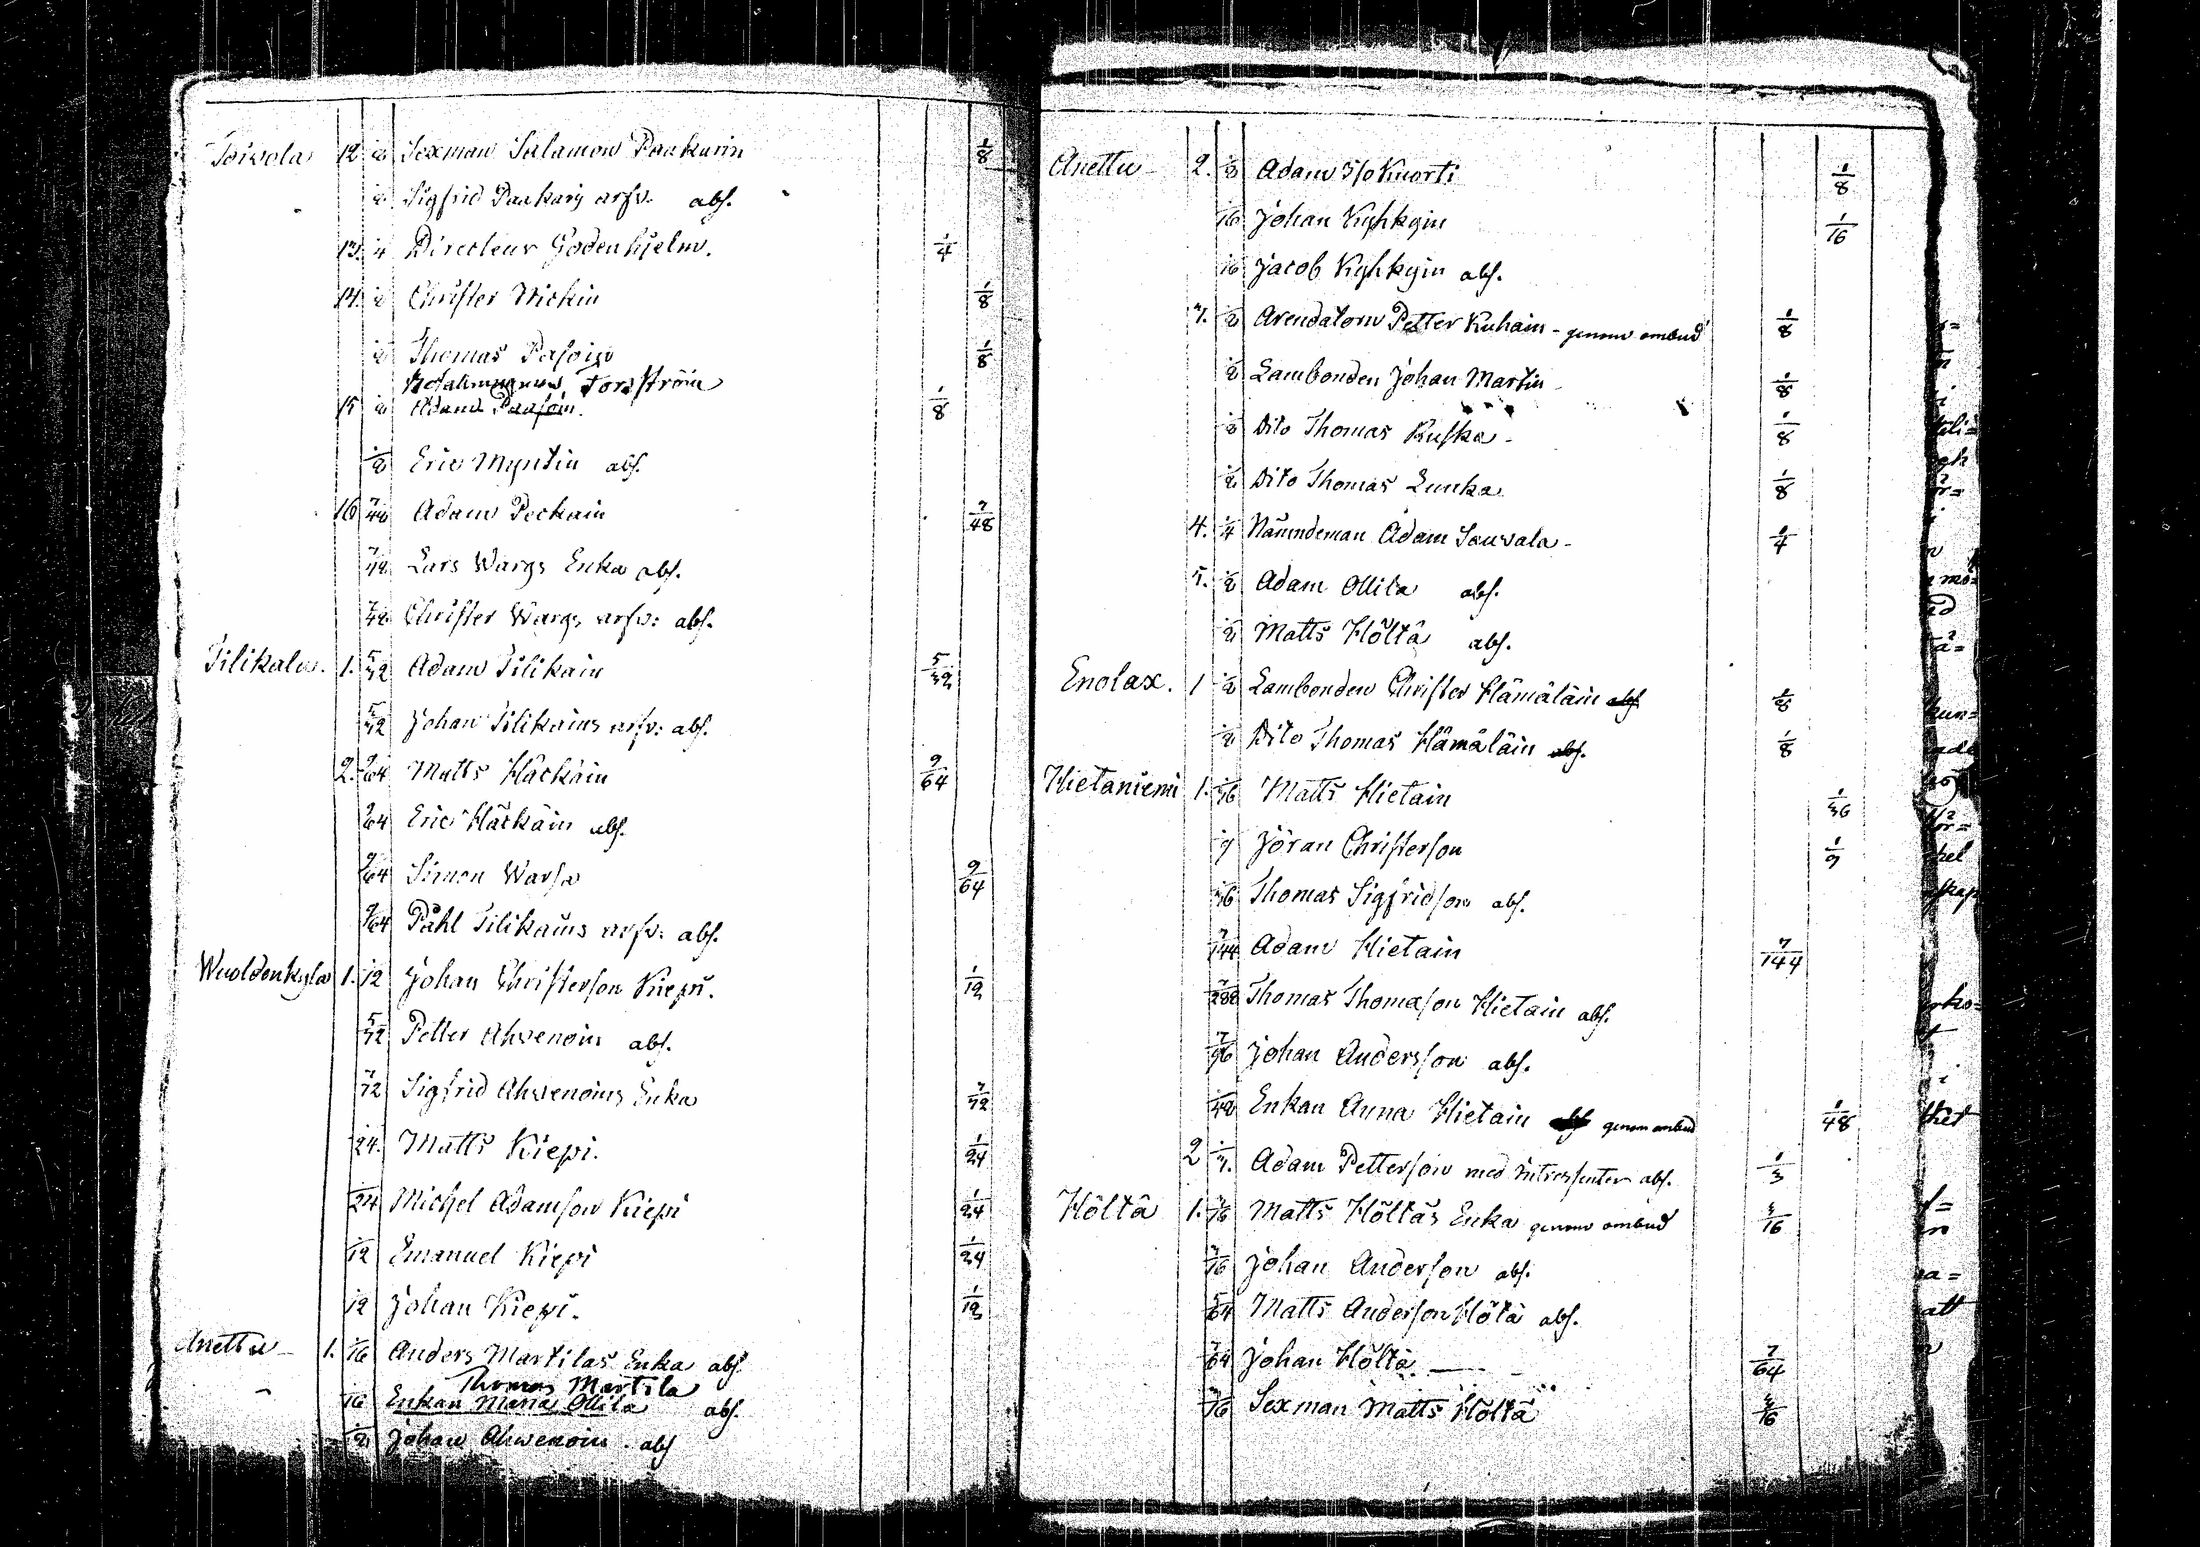 Toivola 12 1/8 Sexman Salamon Paakurin 1/8
1/8 Sigfrid Paakarig arfv. abs.
13. 1/4 Directeur Godenhjelm. 1/4
14. 1/8 Christer Mickin 1/8
1/8 Thomas Pasoig 1/8
Forsström
15 1/8 Adam Paasoin. 1/8
1/8 Eric Myntin abs.
16 7/48 Adam Peckain 7/48
7/48 Lars Wargs Enka abs.
7/48 Christer Wargs arfv: abs.
Pilikala. 1. 5/32 Adam Pilikain 5/32
5/32 Johan Pilikains arfv: abs.
2. 9/64 Matts Häckäin 9/64
9/64 Eric Häckäin abs.
9/64 Simon Warsa 9/64
9/64 Påhl Pilikains arfv: abs.
Wuoldenkyla 1. 1/12 Johan Christerson Kiepi. 1/12
5/72 Petter Ahvenoin abs.
7/72 Sigfrid Ahvenoins Enka 7/72
1/24. Matts Kiepi. 1/24
1/24 Michel Adamson Kiepi 1/24
1/12 Emanuel Kiepi 1/24
1/12 Johan Kiepi. 1/12
Anettu 1. 1/16 Anders Martilas Enka abs.
Thomas Martila
1/16 Enkan Maria Ollila abs.
1/8 Johan Ahvenoin. abs
Anettu 2. 1/8 Adam S/o Kuorti 1/8
1/16 Johan Kyhkyin 1/16
1/16 Jacob Kyhkyin abs.
3. 1/8 Arendatorn Petter Kuhain - genom ombud 1/8
1/8 Lambonden Johan Martin 1/8
1/8 Dito Thomas Ruska - 1/8
1/8 Dito Thomas Lunka 1/8
4. 1/4 Nämndeman Adam Souvala - 1/4
5. 1/8 Adam Ollila abs.
1/8 Matts Höltä abs.
Enolax. 1 1/8 Lambonden Christer Hämäläin abs 1/8
1/8 Dito Thomas Hämäläin abs. 1/8
Hietaniemi 1. 1/36 Matts Hietain 1/36
1/9 Jöran Christerson 1/9
1/36 Thomas Sigfridson abs.
7/144 Adam Hietain 7/144
7/288 Thomas Thomason Hietain abs.
7/96 Johan Andersson abs.
1/48 Enkan Anna Hietain abs genom ombud 1/48
2 1/3. Adam Petterson med intressenter abs. 1/3
Höltä 1. 3/16 Matts Höltäs Enka genom ombud 3/16
3/16 Johan Anderson abs.
5/64 Matts Anderson Hötä abs.
7/64 Johan Höltä 7/64
3/16 Sexman Matts Höltä 3/16